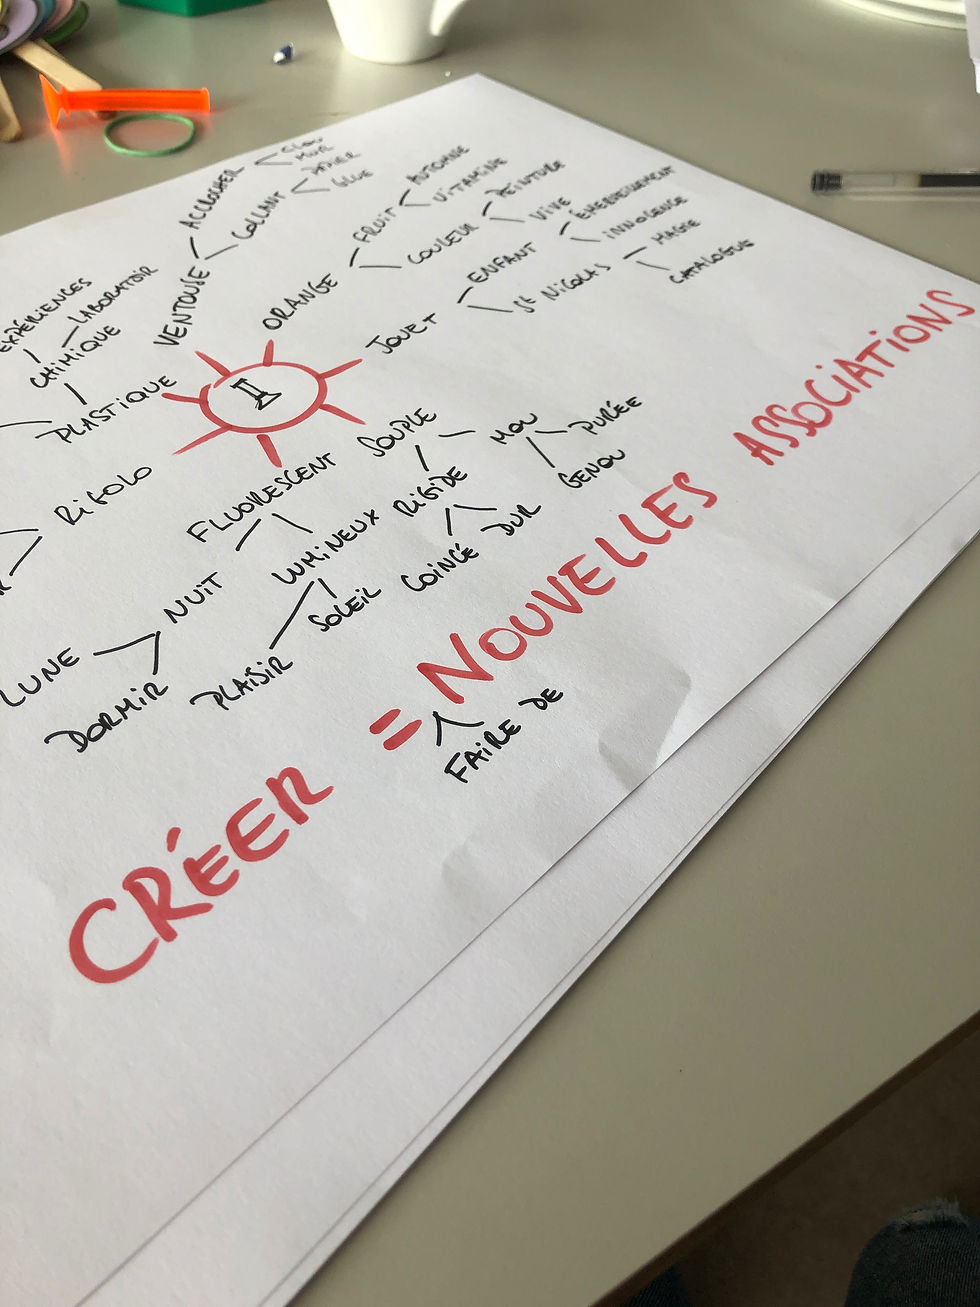 ACCROCHER
CLOU
MUR
COLLANT
PAPIER
GLUE
VENTOUSE
ORANGE
FRUIT
AUTOMNE
VITAMINE
COULEUR
PEINTURE
VIVE
JOUET
ENFANT
ÉMERVEILLEMENT
INNOCENCE
ST NICOLAS
MAGIE
CATALOGUE
EXPÉRIENCES
LABORATOIR
CHIMIQUE
PLASTIQUE
RIGOLO
FLUORESCENT
NUIT
LUNE
DORMIR
LUMINEUX
PLAISIR
SOLEIL
SOUPLE
RIGIDE
COINCÉ
DUR
MOU
PURÉE
GENOU
CRÉER = NOUVELLES ASSOCIATIONS
FAIRE DE